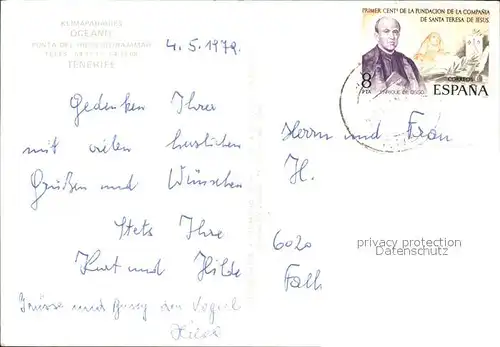 KLIMAPARADIES
OCEANO
PUNTA DEL HIDALGO
TENERIFE
4.5.1979.
PRIMER CENTº DE LA FUNDACION DE LA COMPAÑIA
DE SANTA TERESA DE JESUS
8
PTA
ENRIQUE DE OSSO
CORREOS
ESPAÑA
Gedenken Ihrer
mit vielen herzlichen
Grüßen und Wünschen
Stets Ihre
Kurt und Hilde
Grüsse und
Herrn und Frau
H.
6020
privacy protection
Datenschutz